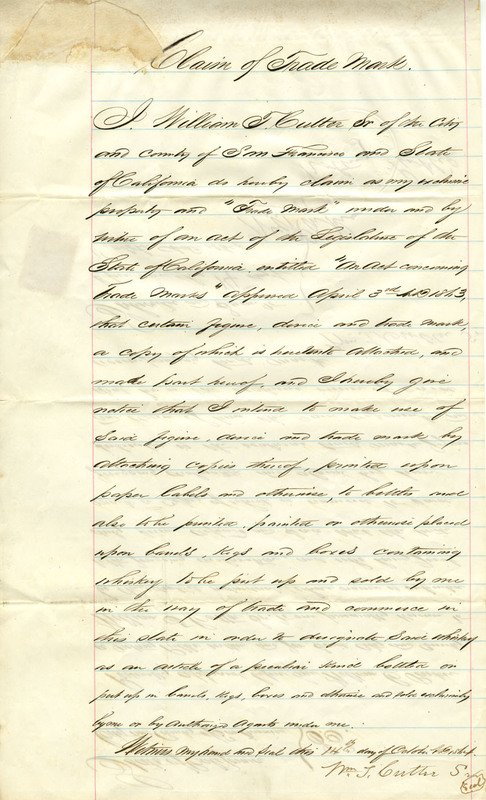 Claim of Trade Mark.
I. William T. Cutter Sr. of the City
and county of San Francisco and State
of California do hereby claim as my exclusive
property and "Trade Mark" under and by
virtue of an act of the Legislature of the
State of California entitled "An Act concerning
Trade Marks" Approved April 3rd A.D. 1863,
that certain figure, device and trade mark,
a copy of which is hereunto attached, and
made part hereof, and I hereby give
notice that I intend to make use of
said figure, device and trade mark by
attaching copies thereof, printed upon
paper labels and otherwise, to bottles and
also to be printed, painted or otherwise placed
upon barrels, kegs and boxes containing
whiskey to be put up and sold by me
in the way of trade and commerce in
this state in order to designate said whiskey
as an article of a peculiar kind bottled or
put up in barrels, kegs, boxes and otherwise and sold exclusively
by me or by Authorized Agents under me.
Witness my hand and seal this 14th day of October
Wm. T. Cutter Sr.
Seal